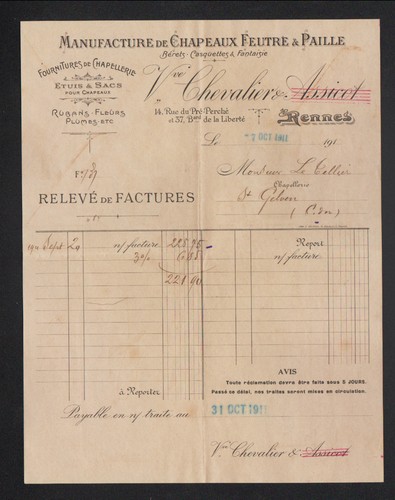 MANUFACTURE DE CHAPEAUX FEUTRE & PAILLE
Bérets - Casquettes & Fantaisie
FOURNITURES DE CHAPELLERIE
ETUIS & SACS
POUR CHAPEAUX
RUBANS - FLEURS
PLUMES - ETC
Vve Chevalier & Assicot
14, Rue du Pré-Perché
et 37, Bard de la Liberté
Rennes
Le 7 OCT 1911 191
Fo 727
Monsieur Le Tellier
Chapellerie
St Gelven
(C. du N.)
RELEVÉ DE FACTURES
Sept 20 n/ facture 228,75
3% 6,85
221,90
Report
n/ facture
à Reporter
AVIS
Toute réclamation devra être faite sous 5 JOURS.
Passé ce délai, nos traites seront mises en circulation.
Payable en n/ traite au 31 OCT 1911
Vve Chevalier & Assicot